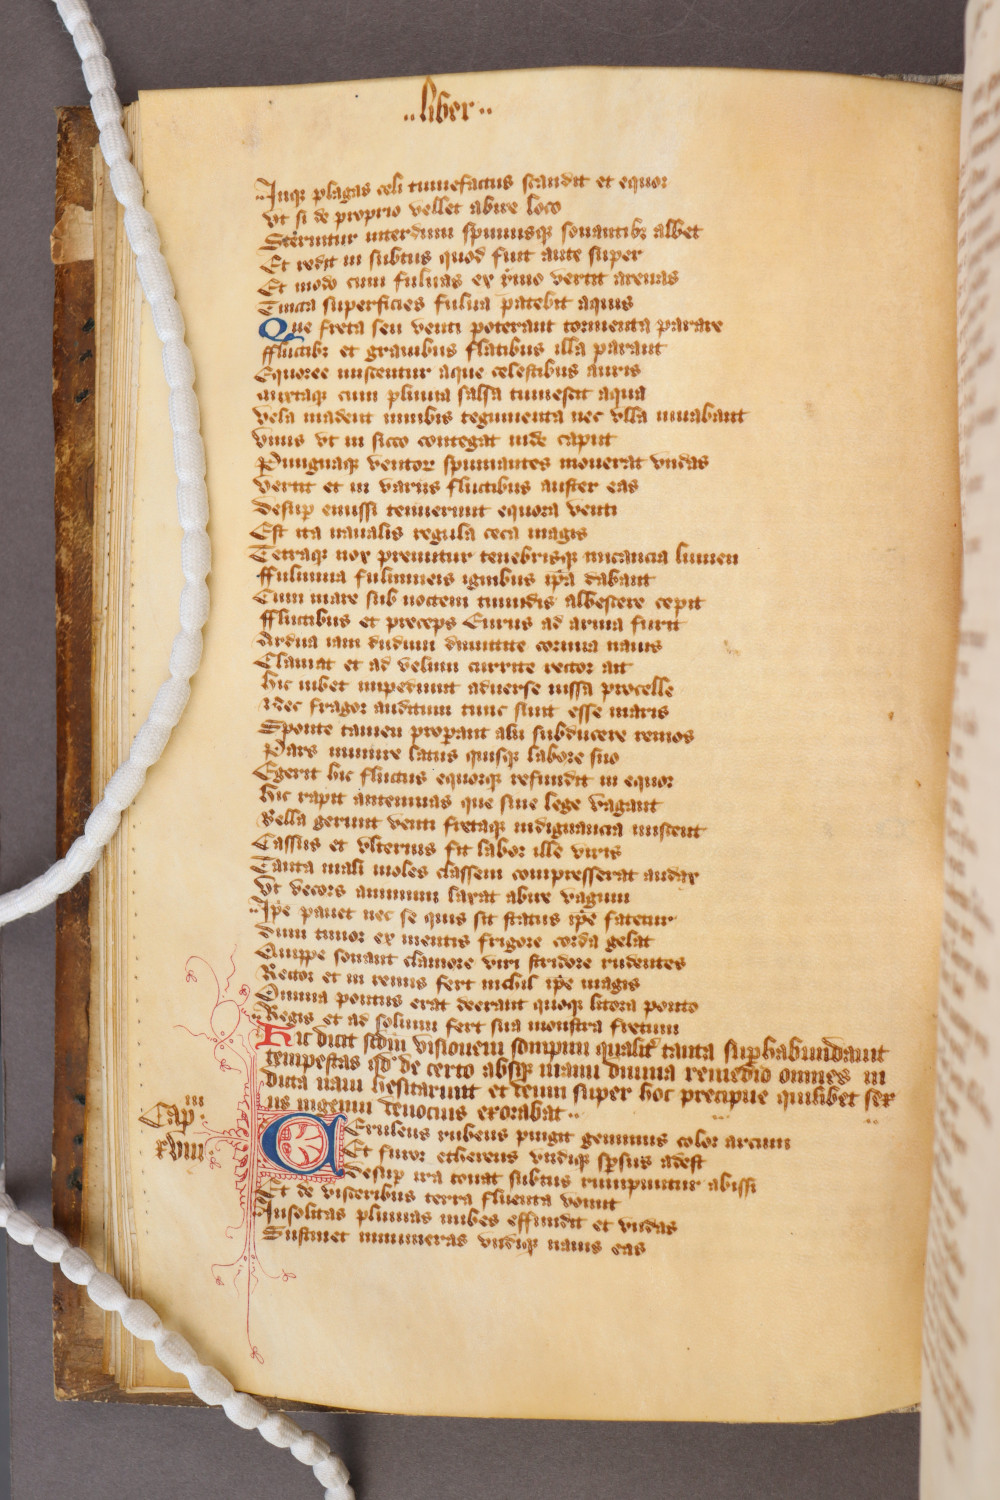 ..liber..
Inq; plagas celi tumefactus scandit et equor
Vt si de proprio vellet abire loco
Sternitur interdum spumisq; sonantib; albet
Et redit in subtus quod fuit ante super
Et modo cum fuluas ex ymo vertit arenas
Tincta superficies fulua patebit aquis
Que freta seu venti poterant tormenta parare
ffluctib; et grauibus flatibus illa parant
Equoree miscentur aque celestibus auris
aque cum pluuia salsa tumescit aqua
Vela madent nimbis tegumenta nec vlla iuuabant
Vnus vt in sicco contegat inde caput
Pungnaq; ventor spumantes mouerat vndas
Vertit et in variis fluctibus auster eas
Desup emissi tenuerunt equora venti
Est ita naualis regula ceca magis
Tetraq; nox premitur tenebrisq; micancia lumen
ffulmina fulmineis ignibus ipa dabant
Cum mare sub noctem tumidis albescere cepit
ffluctibus et preceps Eurus ad arma furit
Ardua iam dudum dimittite cornua nauis
Clamat et ad velum currite rector ait
Hic iubet impediunt aduerse iussa procelle
Nec fragor auditum tunc sinit esse maris
Sponte tamen properant alii subducere remos
Pars munire latus quisq; labore suo
Egerit hic fluctus equorq; refundit in equor
Hic rapit antemnas que sine lege vagant
Bella gerunt venti fretaq; indignancia miscent
Cassus et vlterius fit labor ille viris
Tanta mali moles classem compresserat audax
Vt decors animum laxat abire vagum
Ipe pauet nec se quis sit status ipe fatetur
Dum timor ex mentis frigore corda gelat
Quippe sonant clamore viri stridore rudentes
Rector et in remis fert nichil ipe magis
Omnia pontus erat deerant quoq; litora ponto
Regis et ad solium fert sua monstra fretum
Hic dicit scdm visionem sompnii qualit tanta suphabundauit
tempestas qd de certo absq; manu diuina remedio omnes in
dicta naui hesitarunt et deum super hoc precipue quilibet sex
us ingenui deuocius exorabat..
Cap m
xviii
Ceruleus rubeus pingit geminus color arcum
Et furor ethereus vndiq; spsus adest
Desup ira tonat subtus rumpuntur abissi
Et de visceribus terra fluenta vomit
Insolitas pluuias nubes effundit et vndas
Sustinet innumeras vndiq; nauis eas